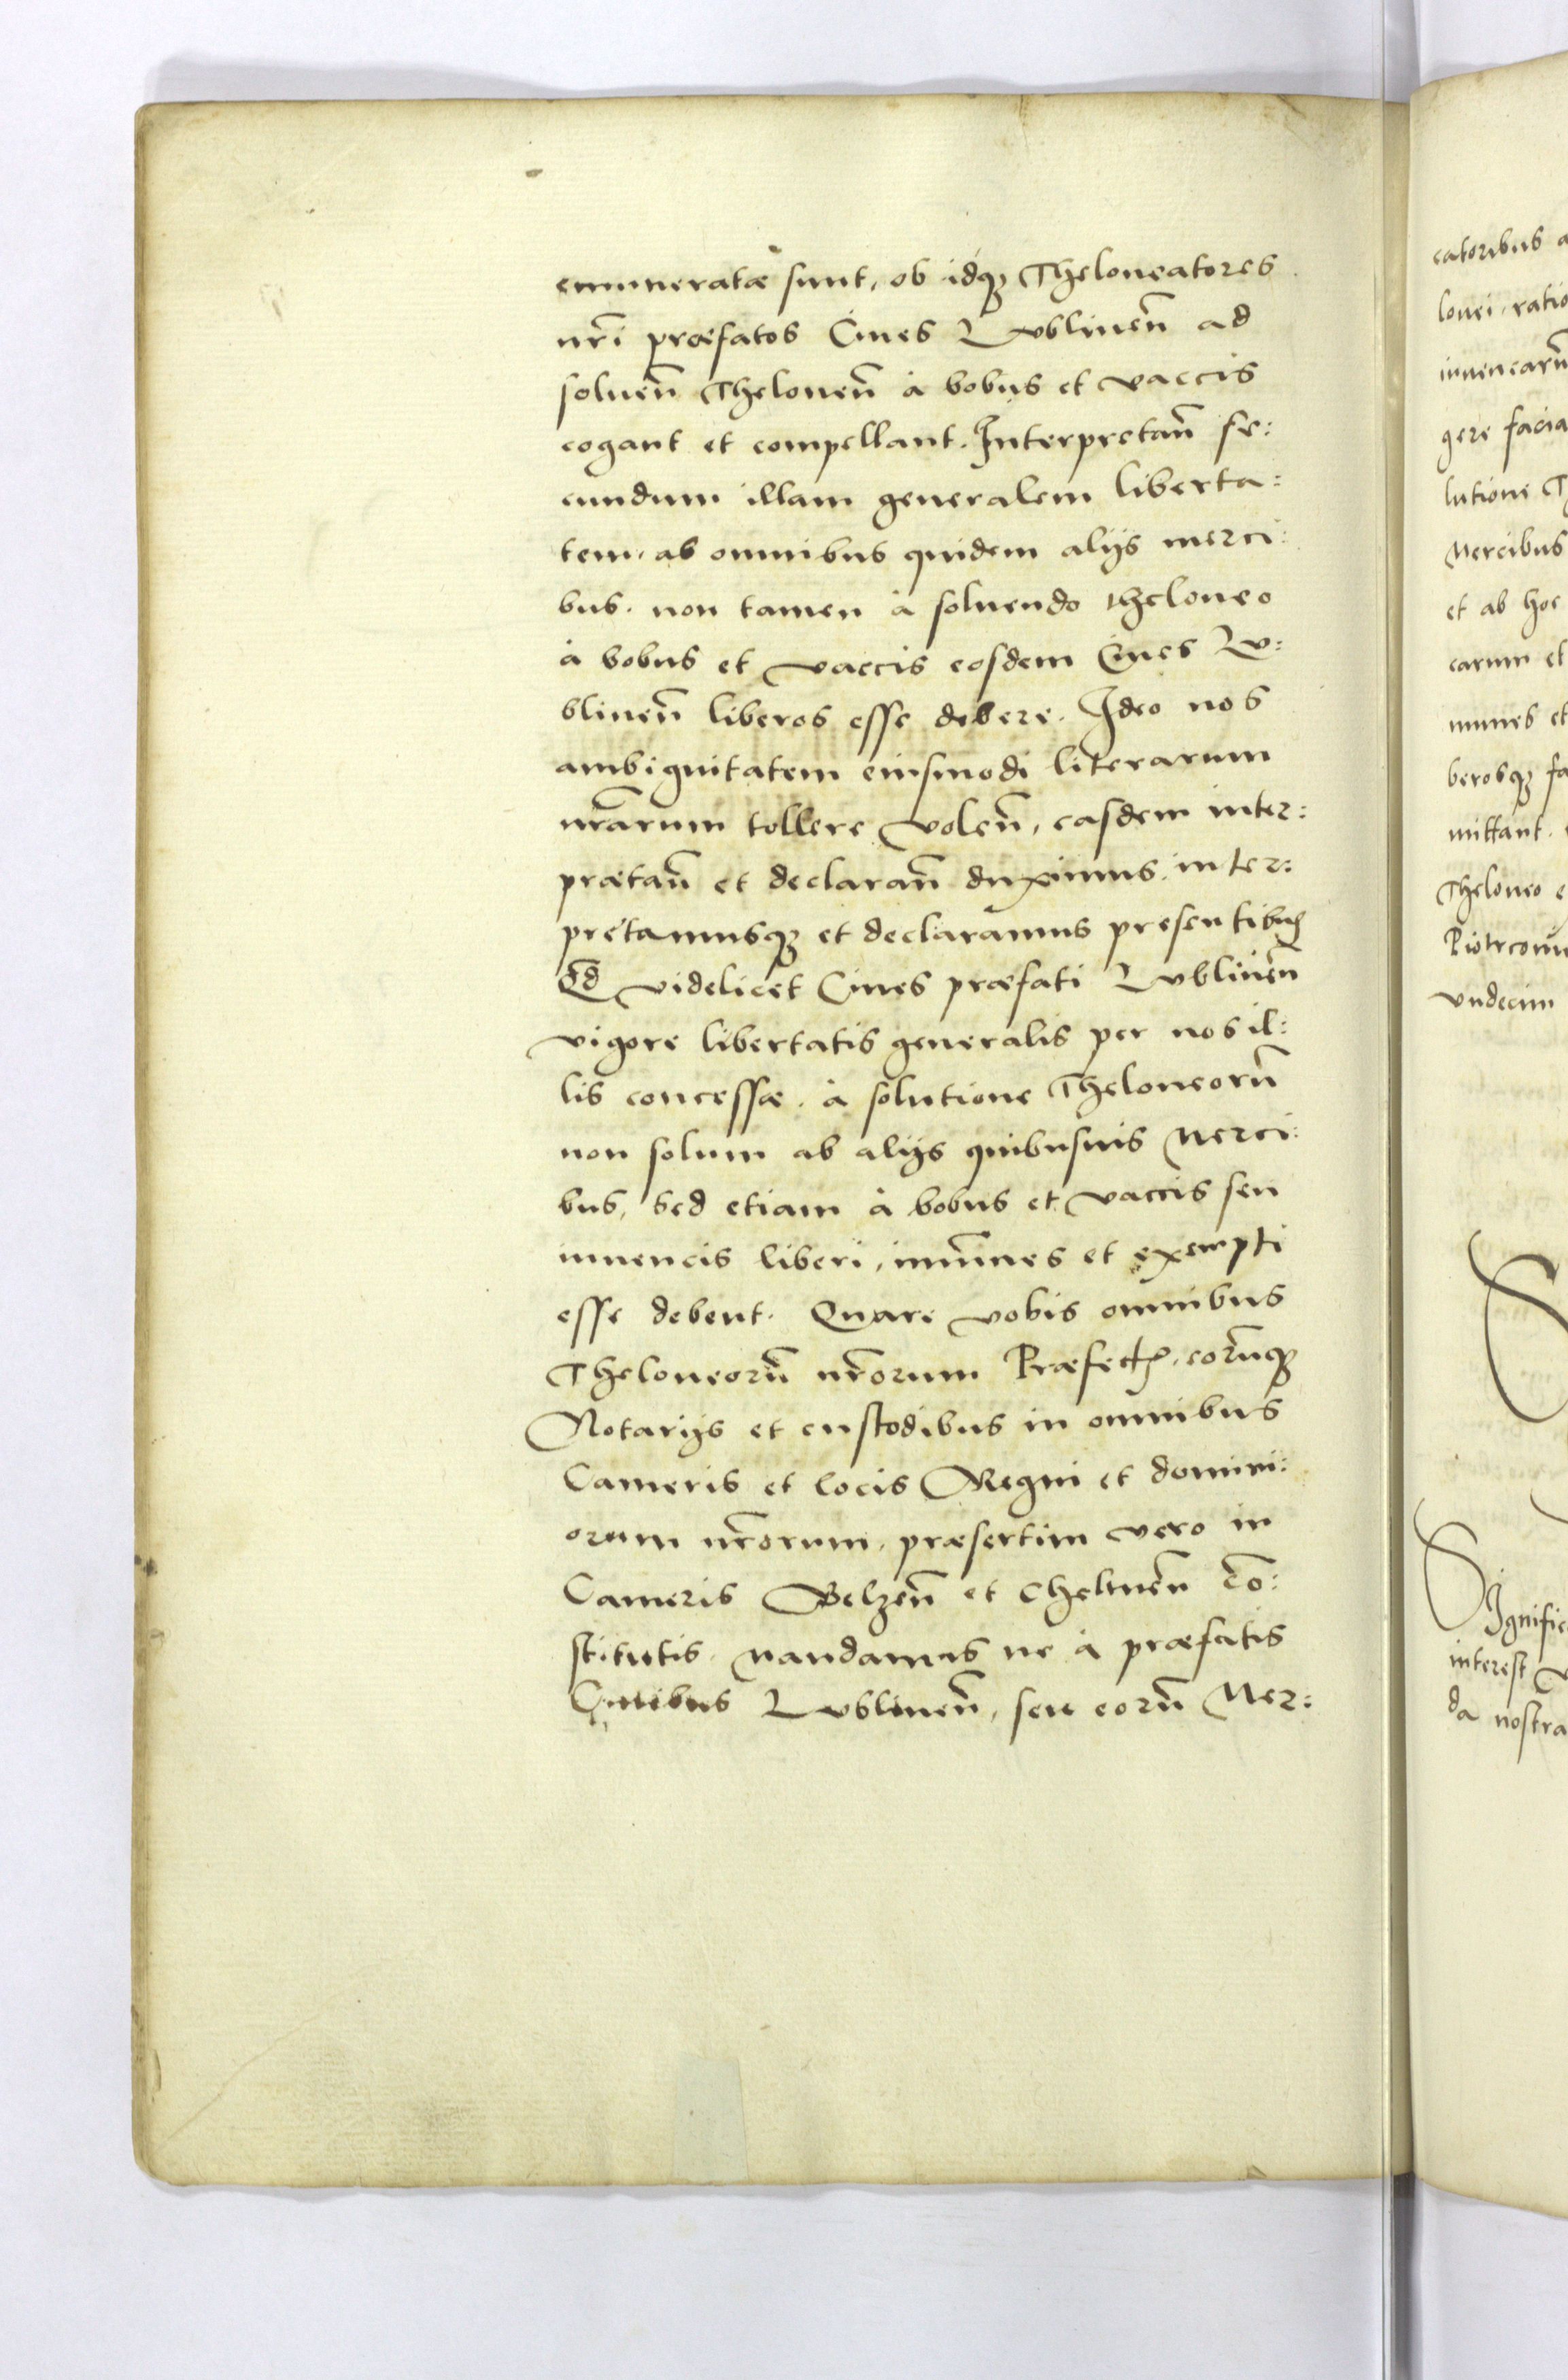 enumeratæ sunt, ob idq3 Theloneatores
nr̃i præfatos Ciues Lublineñ ad
solueñ Theloneũ à bobus et vaccis
cogant et compellant. Interpretañ se:
cundum illam generalem liberta:
tem, ab omnibus quidem alijs merci:
bus. non tamen à soluendo theloneo
à bobus et vaccis eosdem Ciues Lu:
blineñ liberos esse debere. Ideo nos
ambiguitatem eiusmodi literarum
nr̃arum tollere voleñ, easdem inter:
prætañ et declarañ duximus. inter:
pretamusq3 et declaramus presentibus
Qd̃ videlicet Ciues præfati Lublineñ
vigore libertatis generalis per nos il:
lis concessæ. à solutione Theloneorũ
non solum ab alijs quibusuis Merci:
bus, sed etiam à bobus et vaccis seu
iuuencis liberi, imũnes et exempti
esse debent. Quare vobis omnibus
Theloneorũ nr̃orum Præfectis, eorũq3
Notarijs et custodibus in omnibus
Cameris et locis Regni et domini:
orum nr̃orum, præsertim vero in
Cameris Belzeñ et Chelmeñ cõ:
stitutis. Mandamus ne à præfatis
Ciuibus Lublineñ, seu eorũ Mer:
catoribus
lonei, ratio
iuuencarũ
gere facia
lutione
Mercibus
et ab hoc
earum et
munes et
berosq3 fa
mittant.
Theloneo
Piotrcouie
vndecim
Signific
interest
da nostra